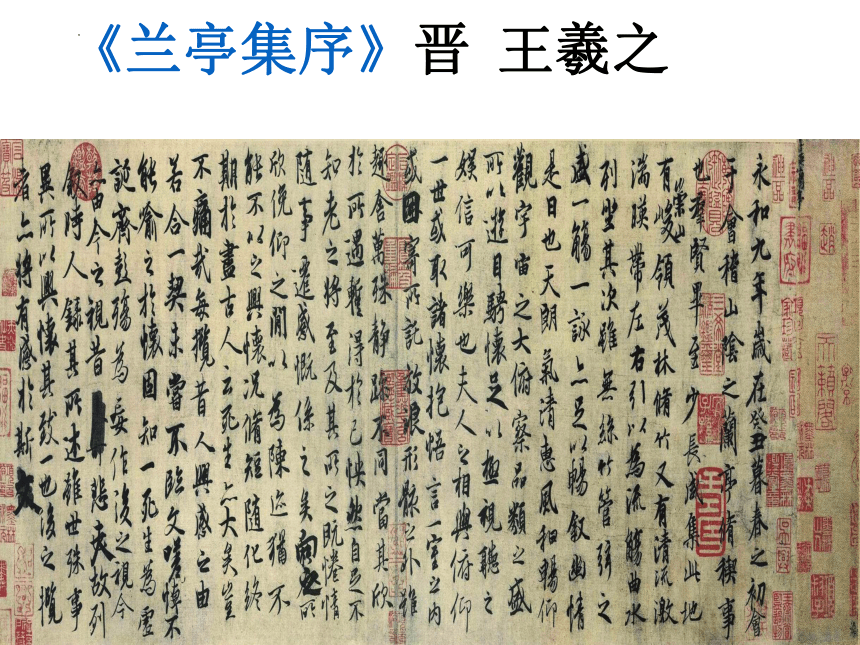 《兰亭集序》晋 王羲之
永和九年歲在癸丑暮春之初會
于會稽山陰之蘭亭脩稧事
也羣賢畢至少長咸集此地
有崇山峻領茂林脩竹又有清流激
湍暎帶左右引以為流觴曲水
列坐其次雖無絲竹管弦之
盛一觴一詠亦足以暢叙幽情
是日也天朗氣清惠風和暢仰
觀宇宙之大俯察品類之盛
所以遊目騁懷足以極視聽之
娛信可樂也夫人之相與俯仰
一世或取諸懷抱悟言一室之內
或因寄所託放浪形骸之外雖
趣舍萬殊靜躁不同當其欣
於所遇蹔得於己怏然自足不
知老之將至及其所之既惓情
隨事遷感慨係之矣向之所
欣俛仰之閒以為陳迹猶不
能不以之興懷況脩短隨化終
期於盡古人云死生亦大矣豈
不痛哉每攬昔人興感之由
若合一契未嘗不臨文嗟悼不
能喻之於懷固知一死生為虛
誕齊彭殤為妄作後之視今
亦由今之視昔悲夫故列
叙時人錄其所述雖世殊事
異所以興懷其致一也後之攬
者亦將有感於斯文